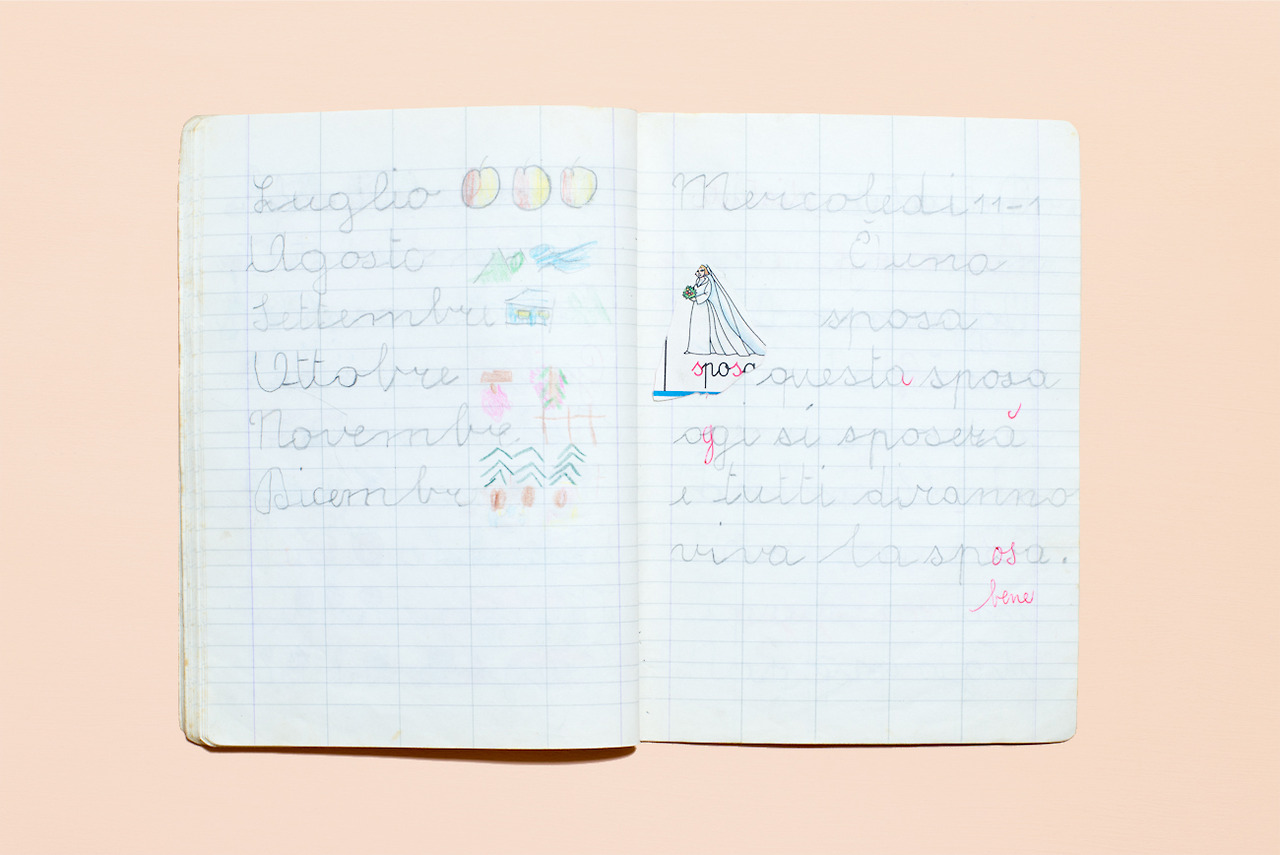 Luglio
Agosto
Settembre
Ottobre
Novembre
Dicembre
Mercoledi 11-1
È una
sposa
sposa
questa sposa
oggi si sposerà
e tutti diranno
viva la sposa.
bene